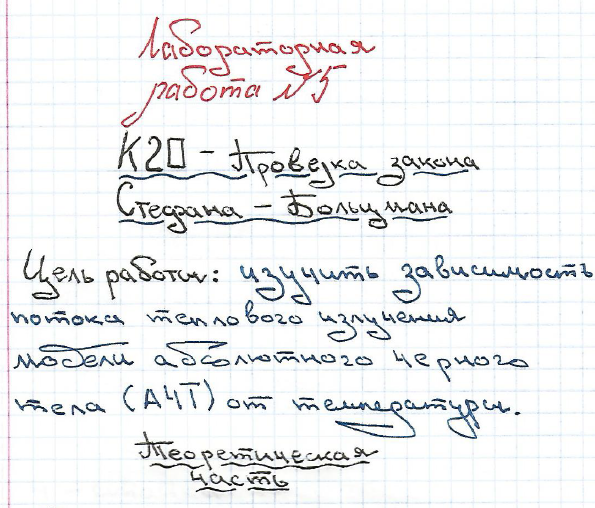 Лабораторная
работа №5
К20 - Проверка закона
Стефана - Больцмана
Цель работы: изучить зависимость
потока теплового излучения
модели абсолютного черного
тела (АЧТ) от температуры.
Теоретическая
часть